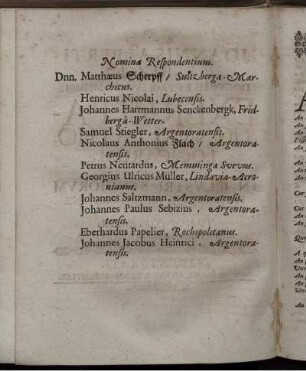 Nomina Respondentium.
Dnn. Matthæus Scherpff / Sultzberga-Mar-
chicus.
Henricus Nicolai, Lubecensis.
Johannes Hartmannus Senckenbergk, Frid-
bergâ-Wetter.
Samuel Stiegler, Argentoratensis.
Nicolaus Anthonius Flach / Argentora-
tensis.
Petrus Neurardus, Memminga Svevus.
Georgius Ulricus Müller, Lindavia-Acro-
nianus.
Johannes Saltzmann, Argentoratensis.
Johannes Paulus Sebizius, Argentora-
tensis.
Eberhardus Papelier, Rochspoletanus.
Johannes Jacobus Heinrici, Argentora-
tensis.